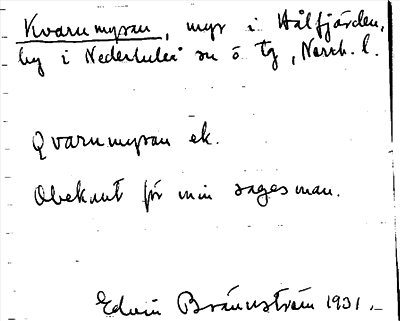 Kvarnmyran, myr i Hålfjärden,
by i Nederluleå sn ö tg, Norrb. l.
Qvarnmyran ek.
Obekant för min sagesman.
Edvin Brännström 1931.